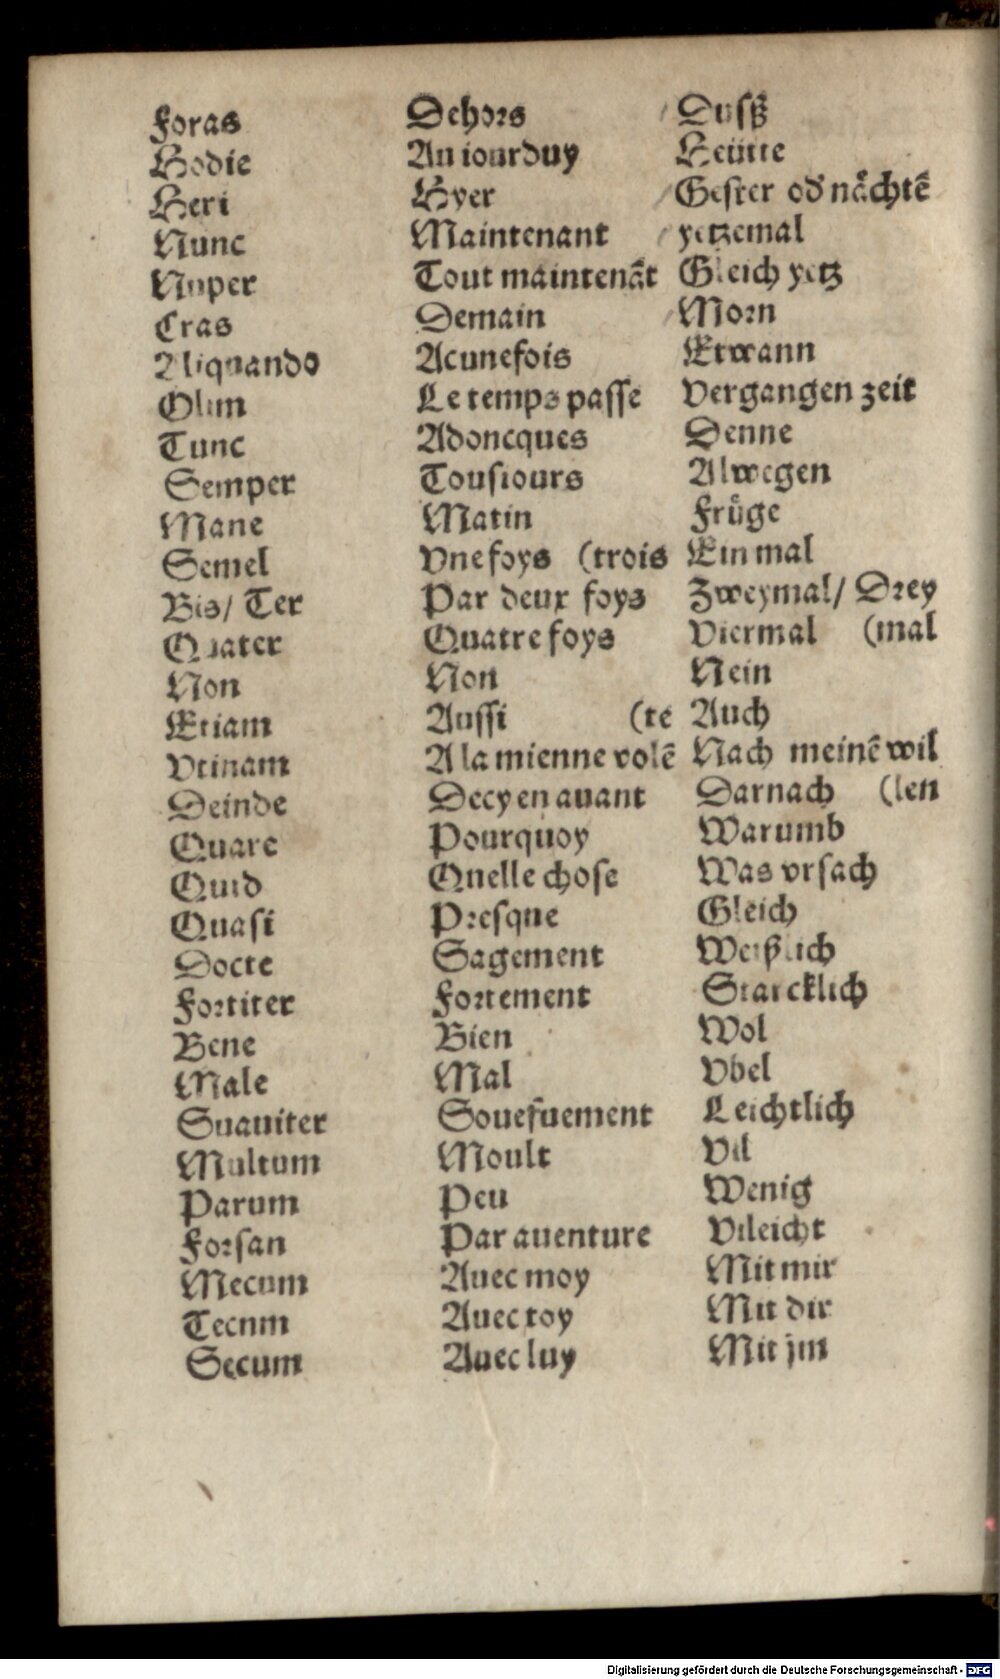 Foras Dehors Dusß
Hodie Au iourduy Heütte
Heri Hyer Gester od' nåchtē
Nunc Maintenant yetzemal
Nuper Tout maintenāt Gleich yetz
Cras Demain Morn
Aliquando Acunefois Etwann
Olim Le temps passe Vergangen zeit
Tunc Adoncques Denne
Semper Tousiours Alwegen
Mane Matin Frůge
Semel Vne foys (trois Ein mal
Bis/ Ter Par deux foys Zweymal/ Drey
Quater Quatre foys Viermal (mal
Non Non Nein
Etiam Aussi (te Auch
Vtinam A la mienne volē Nach meinē wil
Deinde Decy en auant Darnach (len
Quare Pourquoy Warumb
Quid Quelle chose Was vrsach
Quasi Presque Gleich
Docte Sagement Weißlich
Fortiter Fortement Starcklich
Bene Bien Wol
Male Mal Vbel
Suauiter Souefuement Leichtlich
Multum Moult Vil
Parum Peu Wenig
Forsan Par auenture Vileicht
Mecum Auec moy Mit mir
Tecum Auec toy Mit dir
Secum Auec luy Mit jm
Digitalisierung gefördert durch die Deutsche Forschungsgemeinschaft - DFG